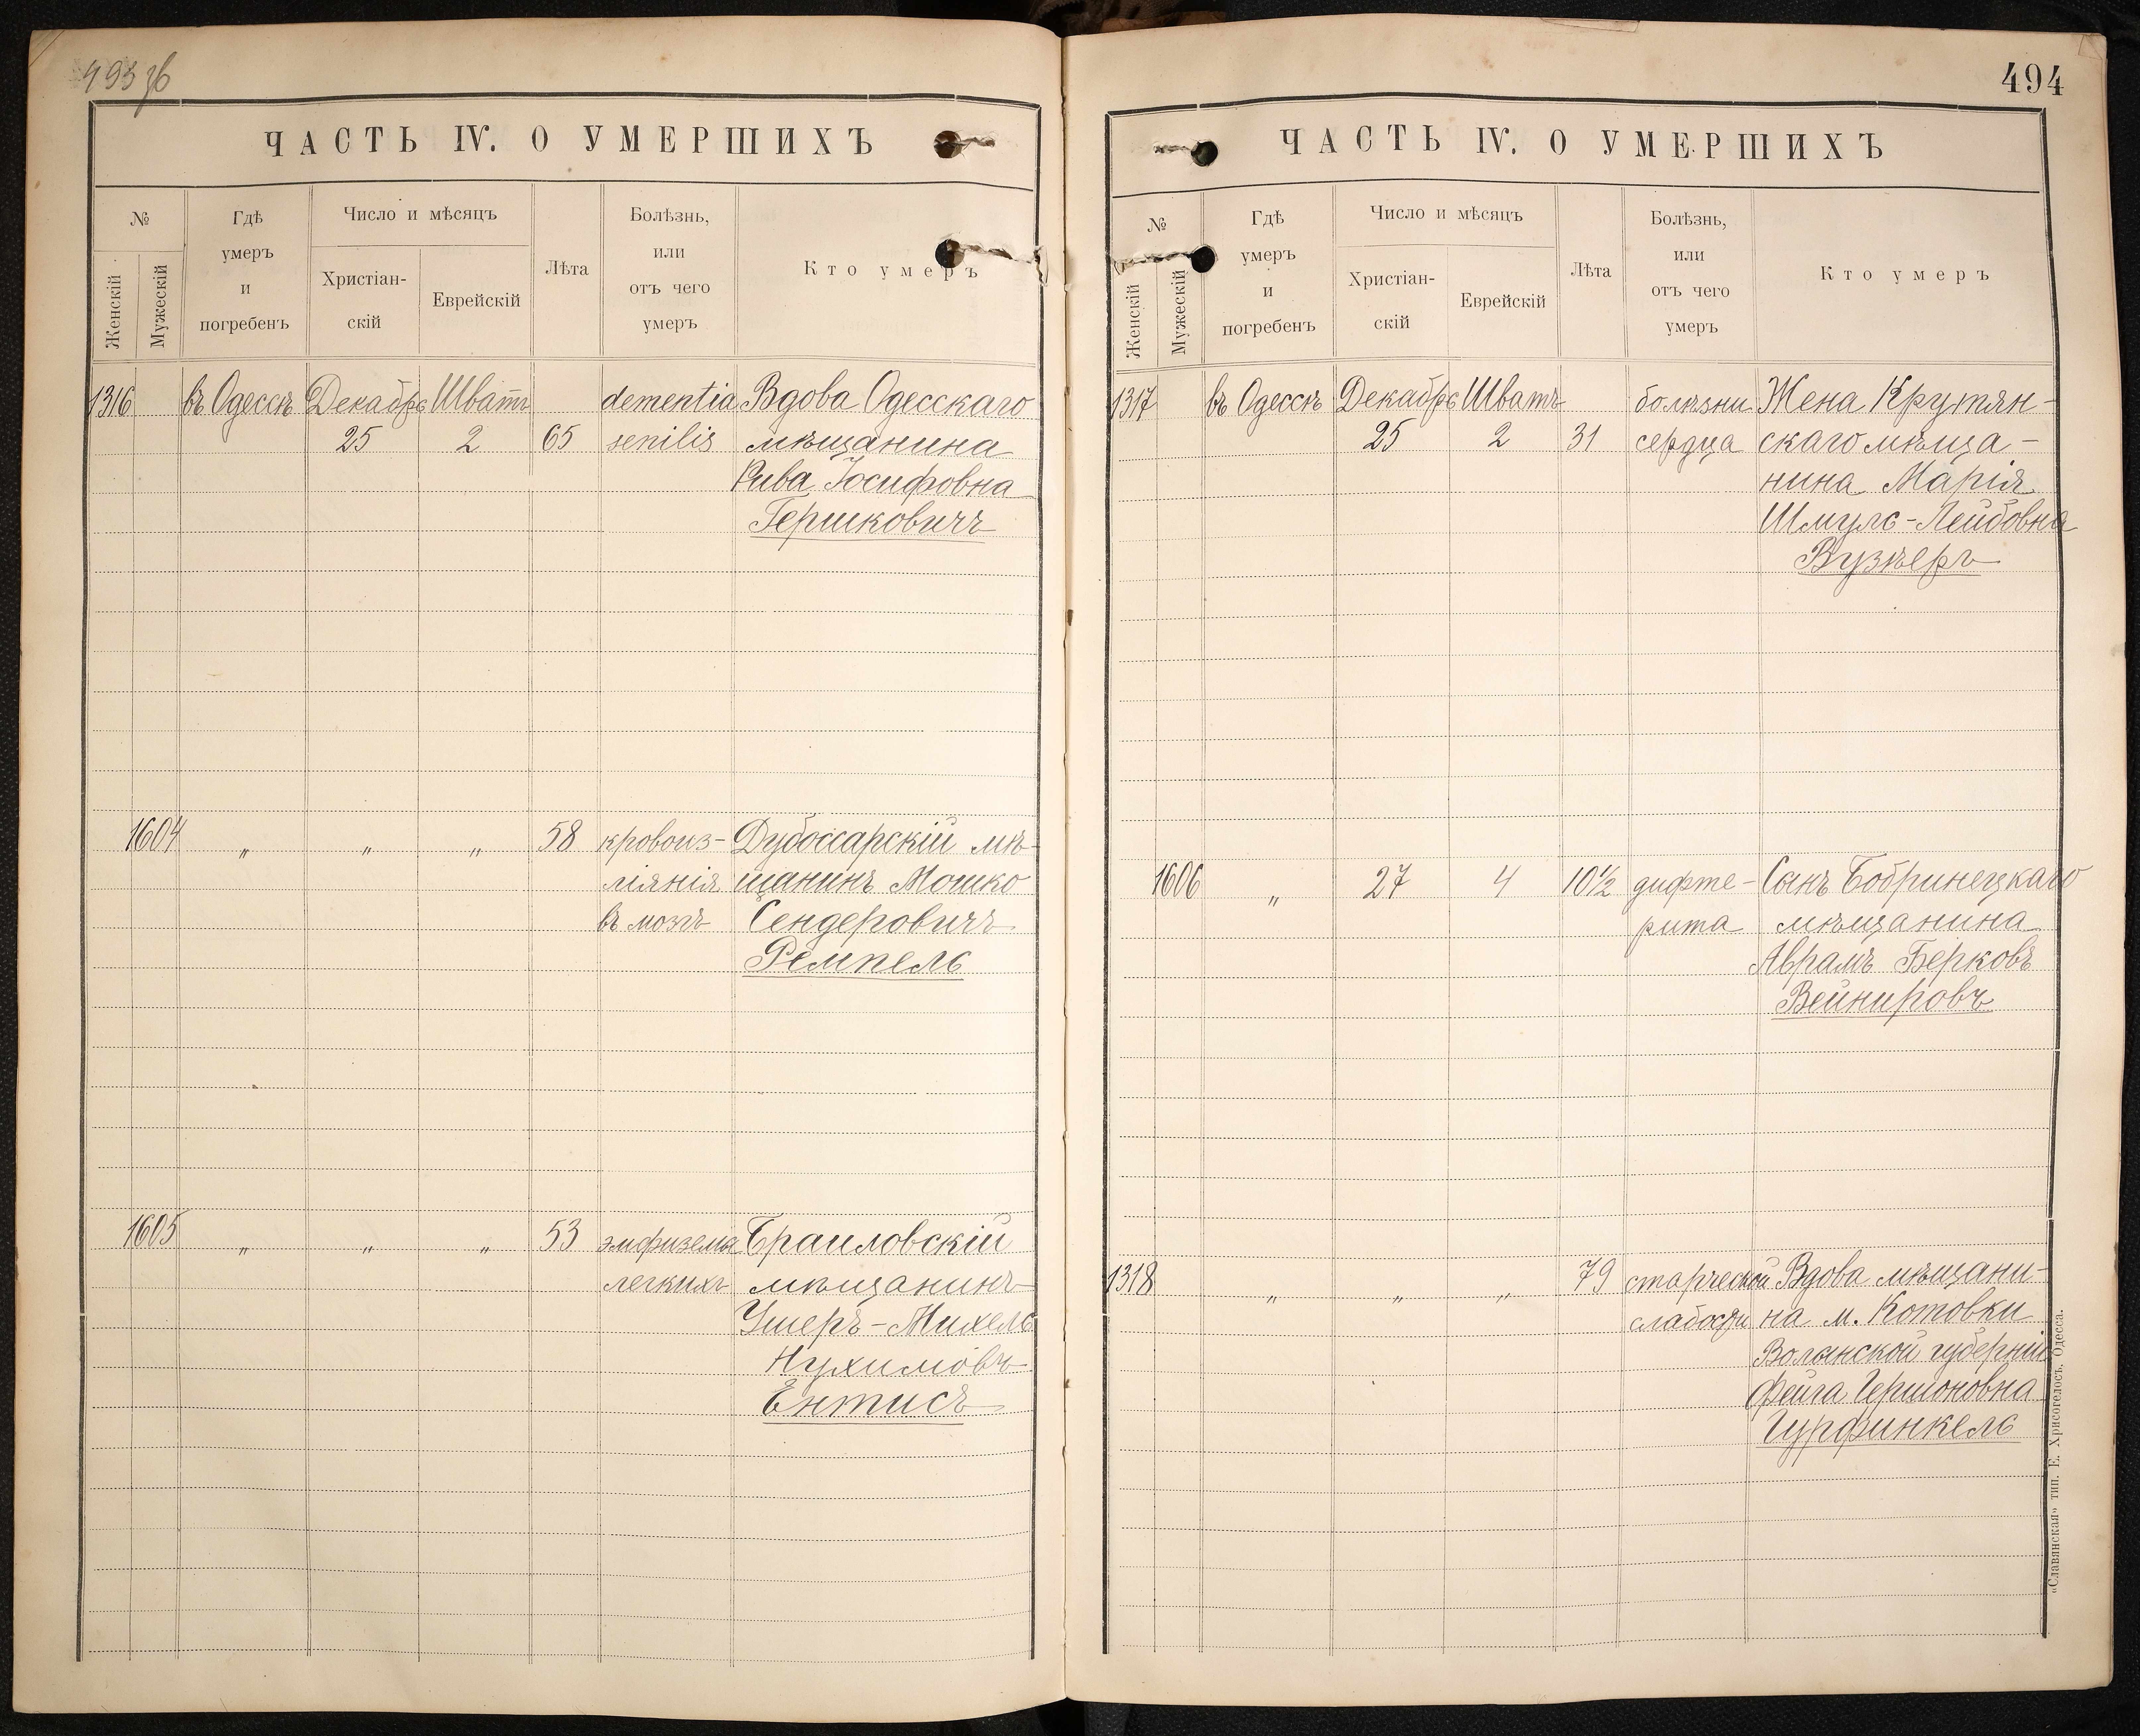 493 зв
ЧАСТЬ IV. О УМЕРШИХЪ
№
Женскій
Мужескій
Гдѣ
умеръ
и
погребенъ
Число и мѣсяцъ
Христіан-
скій
Еврейскій
Лѣта
Болѣзнь,
или
отъ чего
умеръ
Кто умеръ
1316 въ Одессѣ Декабрь Шватъ dementia Вдова Одесскаго
25 2 65 senilis мѣщанина
Рива Іосифовна
Гершковичъ
1604 " " " 58 кровоиз- Дубоссарскій мѣ-
ліянія щанинъ Мошко
въ мозгъ Сендеровичъ
Ремпель
1605 " " " 53 эмфизема Браиловскій
легкихъ мѣщанинъ
Ушеръ-Михель
Нухимовъ
Ентисъ
494
ЧАСТЬ IV. О УМЕРШИХЪ
№
Женскій
Мужескій
Гдѣ
умеръ
и
погребенъ
Число и мѣсяцъ
Христіан-
скій
Еврейскій
Лѣта
Болѣзнь,
или
отъ чего
умеръ
Кто умеръ
1317 въ Одессѣ Декабрь Шватъ болѣзни Жена Крутян-
25 2 31 сердца скаго мѣща-
нина Марія
Шмуль-Лейбовна
Вузкеръ
1606 " 27 4 10½ дифте- Сынъ Бобринецкаго
рита мѣщанина
Аврамъ Берковъ
Вейнировъ
1318 " " " 79 старческой Вдова мѣщани-
слабости на м. Котовки
Волынской губерніи
Фейга Гершоновна
Гурфинкель
«Славянская» тип. Е. Хрисогелосъ. Одесса.